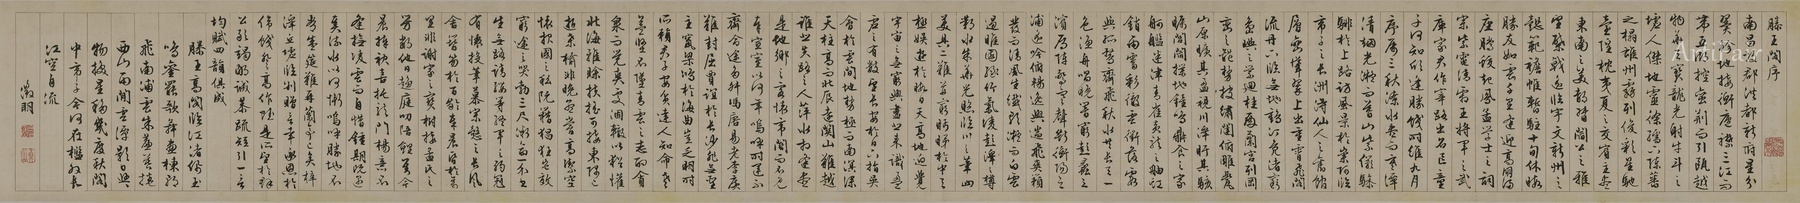 滕王閣序
南昌故郡洪都新府星分
翼軫地接衡廬襟三江而
帶五湖控蠻荊而引甌越
物華天寶龍光射牛斗之
墟人傑地靈徐孺下陳蕃
之榻雄州霧列俊彩星馳
臺隍枕夷夏之交賓主盡
東南之美都督閻公之雅
望棨戟遙臨宇文新州之
懿範襜帷暫駐十旬休暇
勝友如雲千里逢迎高朋滿
座騰蛟起鳳孟學士之詞
宗紫電清霜王將軍之武
庫家君作宰路出名區童
子何知躬逢勝餞時維九月
序屬三秋潦水盡而寒潭
清煙光凝而暮山紫儼驂
騑於上路訪風景於崇阿臨
帝子之長洲得仙人之舊館
層巒聳翠上出重霄飛閣
流丹下臨無地鶴汀鳧渚窮
島嶼之縈迴桂殿蘭宮列岡
巒之體勢披繡闥俯雕甍
山原曠其盈視川澤盱其駭
矚閭閻撲地鐘鳴鼎食之家
舸艦迷津青雀黃龍之舳虹
銷雨霽彩徹雲衢落霞
與孤鶩齊飛秋水共長天一
色漁舟唱晚響窮彭蠡之
濱雁陣驚寒聲斷衡陽之
浦遙吟俯暢逸興遄飛爽籟
發而清風生纖歌凝而白雲
遏睢園綠竹氣凌彭澤之樽
鄴水朱華光照臨川之筆四
美具二難并窮睇眄於中天
極娛遊於暇日天高地迥覺
宇宙之無窮興盡悲來識盈
虛之有數望長安於日下指吳
會於雲間地勢極而南溟深
天柱高而北辰遠關山難越
誰悲失路之人萍水相逢盡
是他鄉之客懷帝閽而不見
奉宣室以何年嗚呼時運不
齊命途多舛馮唐易老李廣
難封屈賈誼於長沙非無聖
主竄梁鴻於海曲豈乏明時
所賴君子安貧達人知命老
當益堅不墜青雲之志酌貪
泉而覺爽處涸轍以猶懽
北海雖賒扶搖可接東隅已
逝桑榆非晚孟嘗高潔空
懷報國之心阮籍猖狂豈效
窮途之哭勃三尺微命一介書
生無路請纓等終軍之弱冠
有懷投筆慕宗愨之長風
舍簪笏於百齡奉晨昏於萬
里非謝家之寶樹接孟氏之
芳鄰他日趨庭叨陪鯉對今
晨捧袂喜託龍門楊意不
逢撫凌雲而自惜鍾期既遇
奏流水以何慚嗚呼勝地不
常盛筵難再蘭亭已矣梓
澤丘墟臨別贈言幸承恩於
偉餞登高作賦是所望於群
公敢竭鄙誠恭疏短引一言
均賦四韻俱成
滕王高閣臨江渚佩玉
鳴鑾罷歌舞畫棟朝
飛南浦雲朱簾暮捲
西山雨閒雲潭影日悠悠
物換星移幾度秋閣
中帝子今何在檻外長
江空自流
徵明